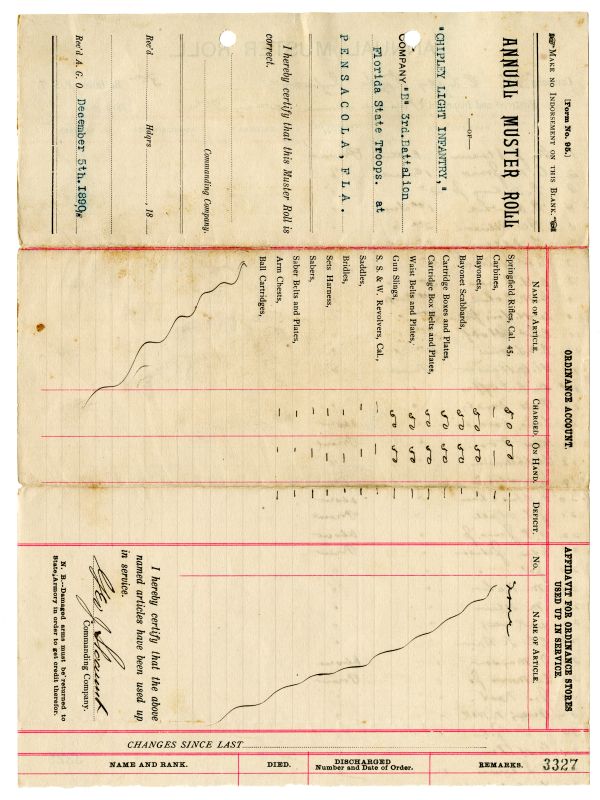 [Form No. 95.]
MAKE NO INDORSEMENT ON THIS BLANK.
ANNUAL MUSTER ROLL
—OF—
"CHIPLEY LIGHT INFANTRY,"
COMPANY "B" 3rd.Battalion
Florida State Troops. at
PENSACOLA, FLA.
I hereby certify that this Muster Roll is
correct.
Commanding Company.
Rec'd Hdqrs , 18
Rec'd A. G. O December 5th.1890,
ORDINANCE ACCOUNT.
NAME OF ARTICLE. CHARGED. ON HAND. DEFICIT.
Springfield Rifles, Cal. 45, 50 50 —
Carbines, — — —
Bayonets, 50 50 —
Bayonet Scabbards, 50 50 —
Cartridge Boxes and Plates, 50 50 —
Cartridge Box Belts and Plates, 50 50 —
Waist Belts and Plates, 50 50 —
Gun Slings, 50 50 —
S. S. & W. Revolvers, Cal., — — —
Saddles, — — —
Bridles, — — —
Sets Harness, — — —
Sabers, — — —
Saber Belts and Plates, — — —
Arm Chests, — — —
Ball Cartridges,
AFFIDAVIT FOR ORDINANCE STORES
USED UP IN SERVICE.
NO. NAME OF ARTICLE.
none
I hereby certify that the above
named articles have been used up
in service.
Commanding Company.
N. B.--Damaged arms must be returned to
State Armory in order to get credit therefor.
CHANGES SINCE LAST
NAME AND RANK. DIED. DISCHARGED
Number and Date of Order. REMARKS.
3327